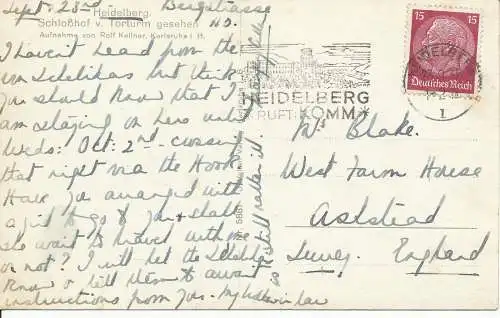 Sept: 23rd
Bergstrasse
Heidelberg.
Schloßhof v. Torturm gesehen
No.
Aufnahme von Rolf Kellner, Karlsruhe i. B.
I haven't heard from the
but think
you should know that I
am staying on here until
Weds: Oct: 2nd - crossing
that night via the Hook
Have you arranged with
a girl to go to you & shall
she want to travel with me
or not? I will let the
know or tell them to await
instructions from you. - My
is still rather ill.
HEIDELBERG
RUFT: KOMM
15
15
Deutsches Reich
1
Blake.
West Farm House
Ashstead
Surrey.
England